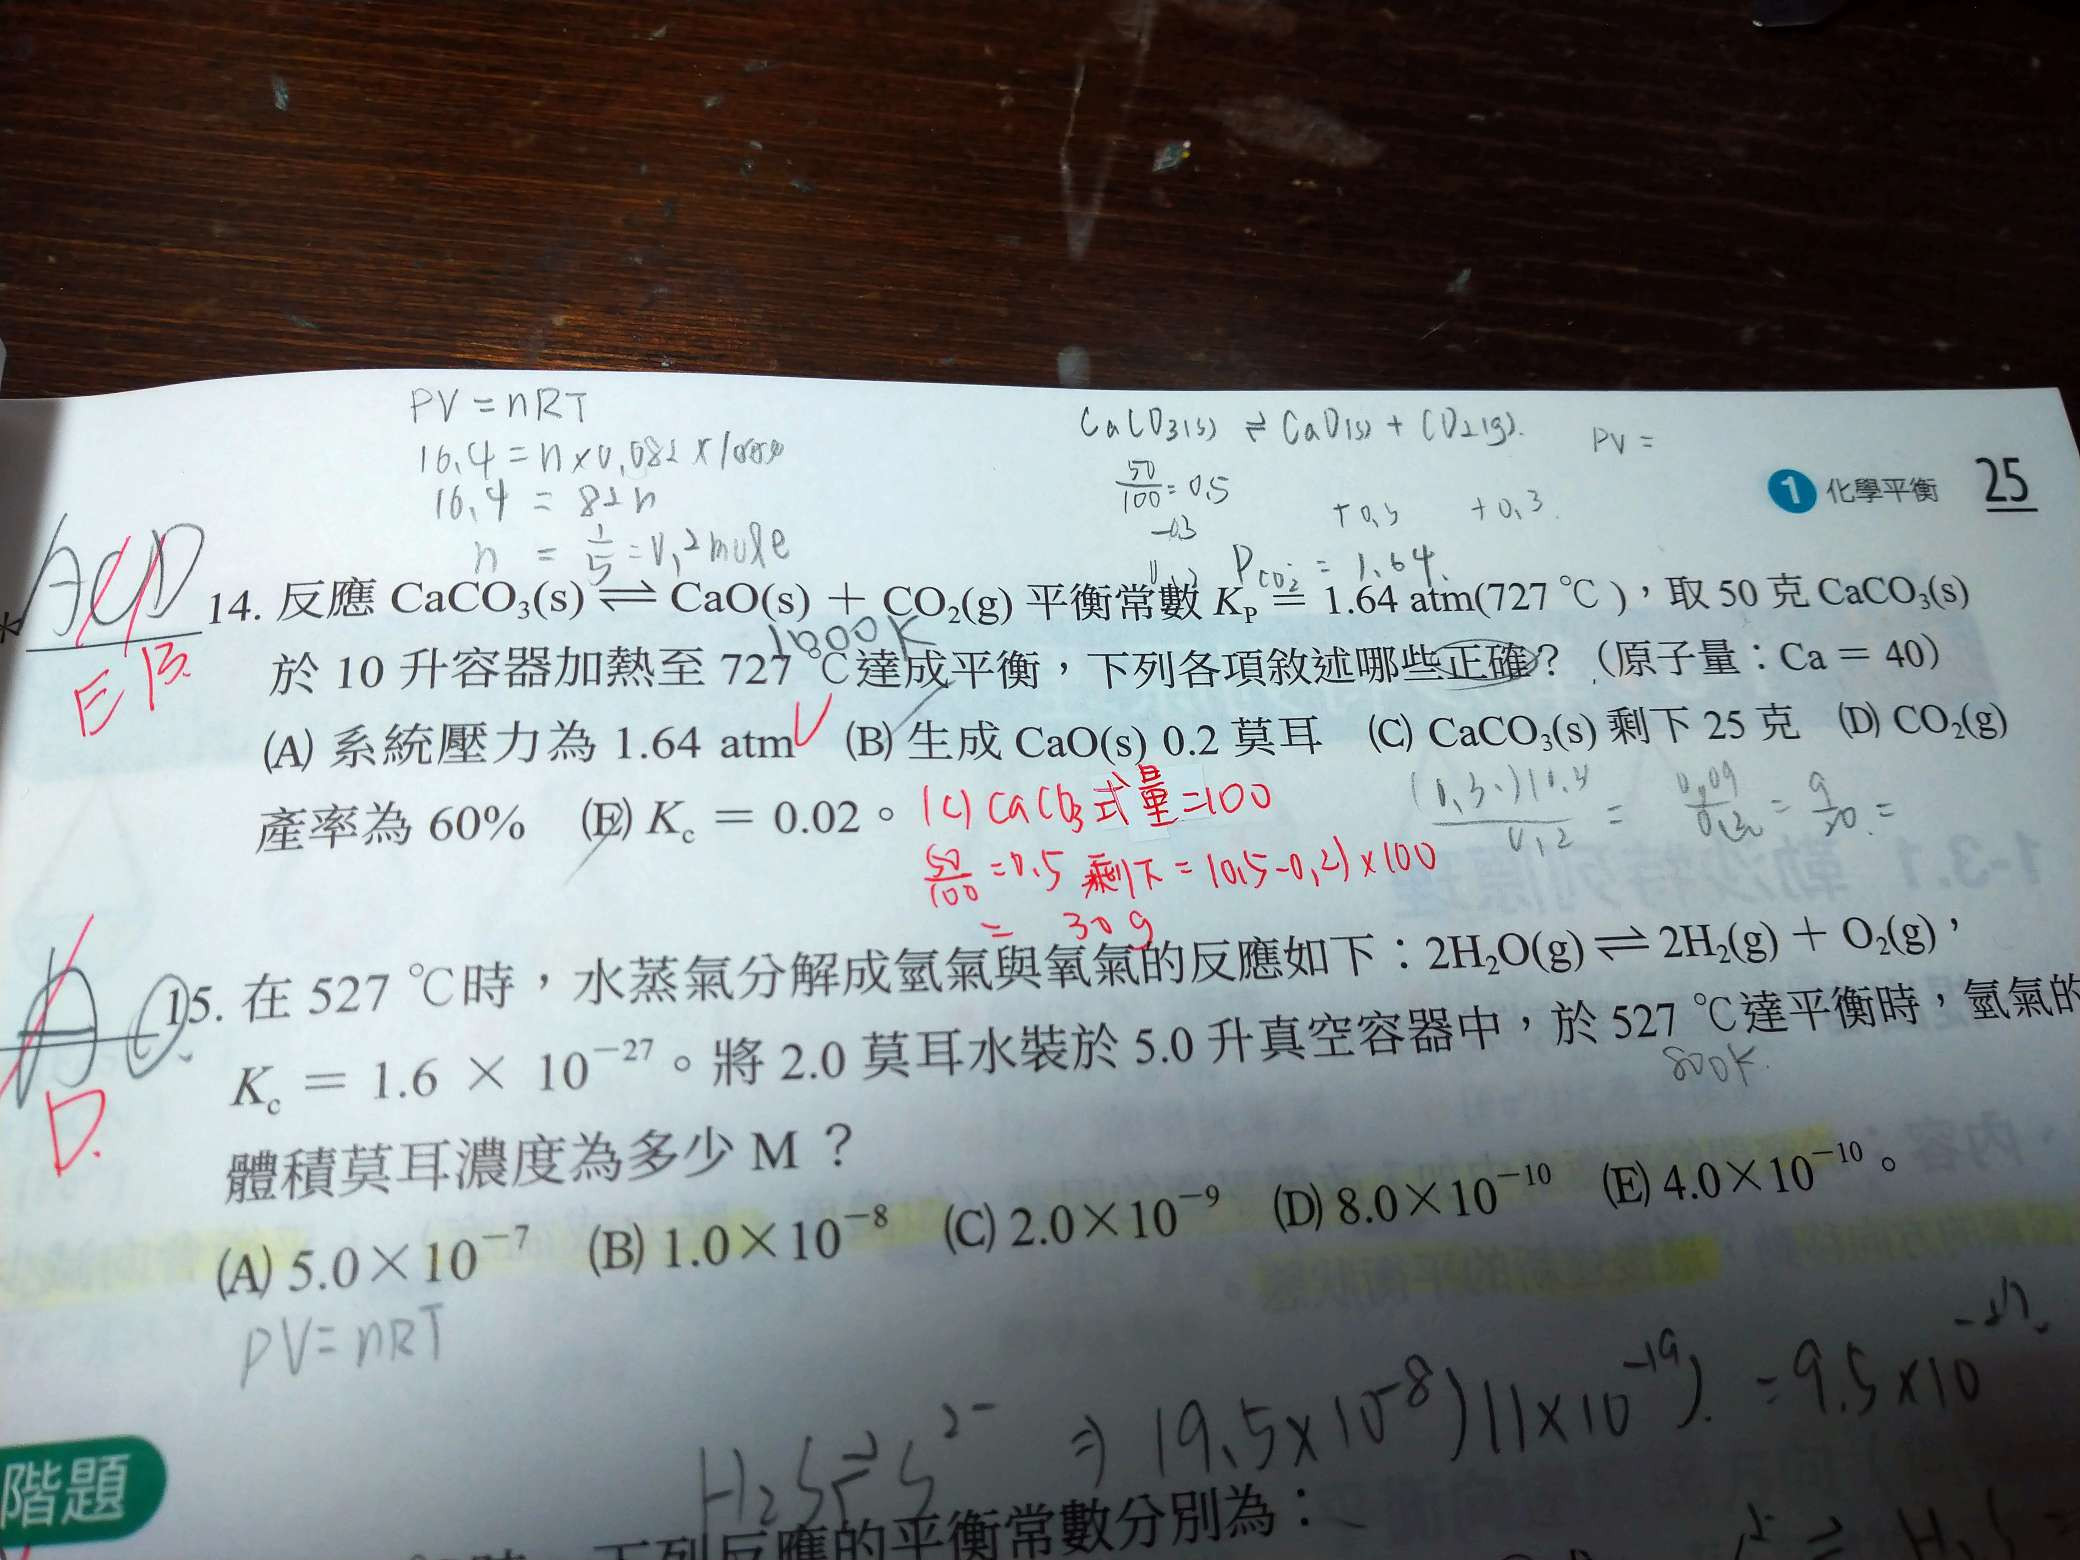 PV = nRT
16.4 = n × 0.082 × 1000
16.4 = 82n
n = 1/5 = 0.2 mole
CaCO3(s) ⇌ CaO(s) + CO2(g)
50/100 = 0.5
-0.3 +0.3 +0.3
PCO2 = 1.64
PV =
1 化學平衡 25
ACD
E B.
*14. 反應 CaCO₃(s) ⇌ CaO(s) + CO₂(g) 平衡常數 Kp = 1.64 atm(727 ℃),取 50 克 CaCO₃(s)
1000K
於 10 升容器加熱至 727 ℃達成平衡,下列各項敘述哪些正確?(原子量:Ca = 40)
(A) 系統壓力為 1.64 atm (B) 生成 CaO(s) 0.2 莫耳 (C) CaCO₃(s) 剩下 25 克 (D) CO₂(g)
產率為 60% (E) Kc = 0.02。
(C) CaCO3 式量 = 100
50/100 = 0.5 剩下 = (0.5-0.2) × 100
= 30g
A
D.
15. 在 527 ℃時,水蒸氣分解成氫氣與氧氣的反應如下:2H₂O(g) ⇌ 2H₂(g) + O₂(g),
Kc = 1.6 × 10⁻²⁷。將 2.0 莫耳水裝於 5.0 升真空容器中,於 527 ℃達平衡時,氫氣的
800K.
體積莫耳濃度為多少 M ?
(A) 5.0×10⁻⁷ (B) 1.0×10⁻⁸ (C) 2.0×10⁻⁹ (D) 8.0×10⁻¹⁰ (E) 4.0×10⁻¹⁰。
PV = nRT
H2S ⇌ S²⁻ ⇒ (9.5×10⁻⁸)(1×10⁻¹⁹) = 9.5×10⁻²⁷
階題
下列反應的平衡常數分別為: